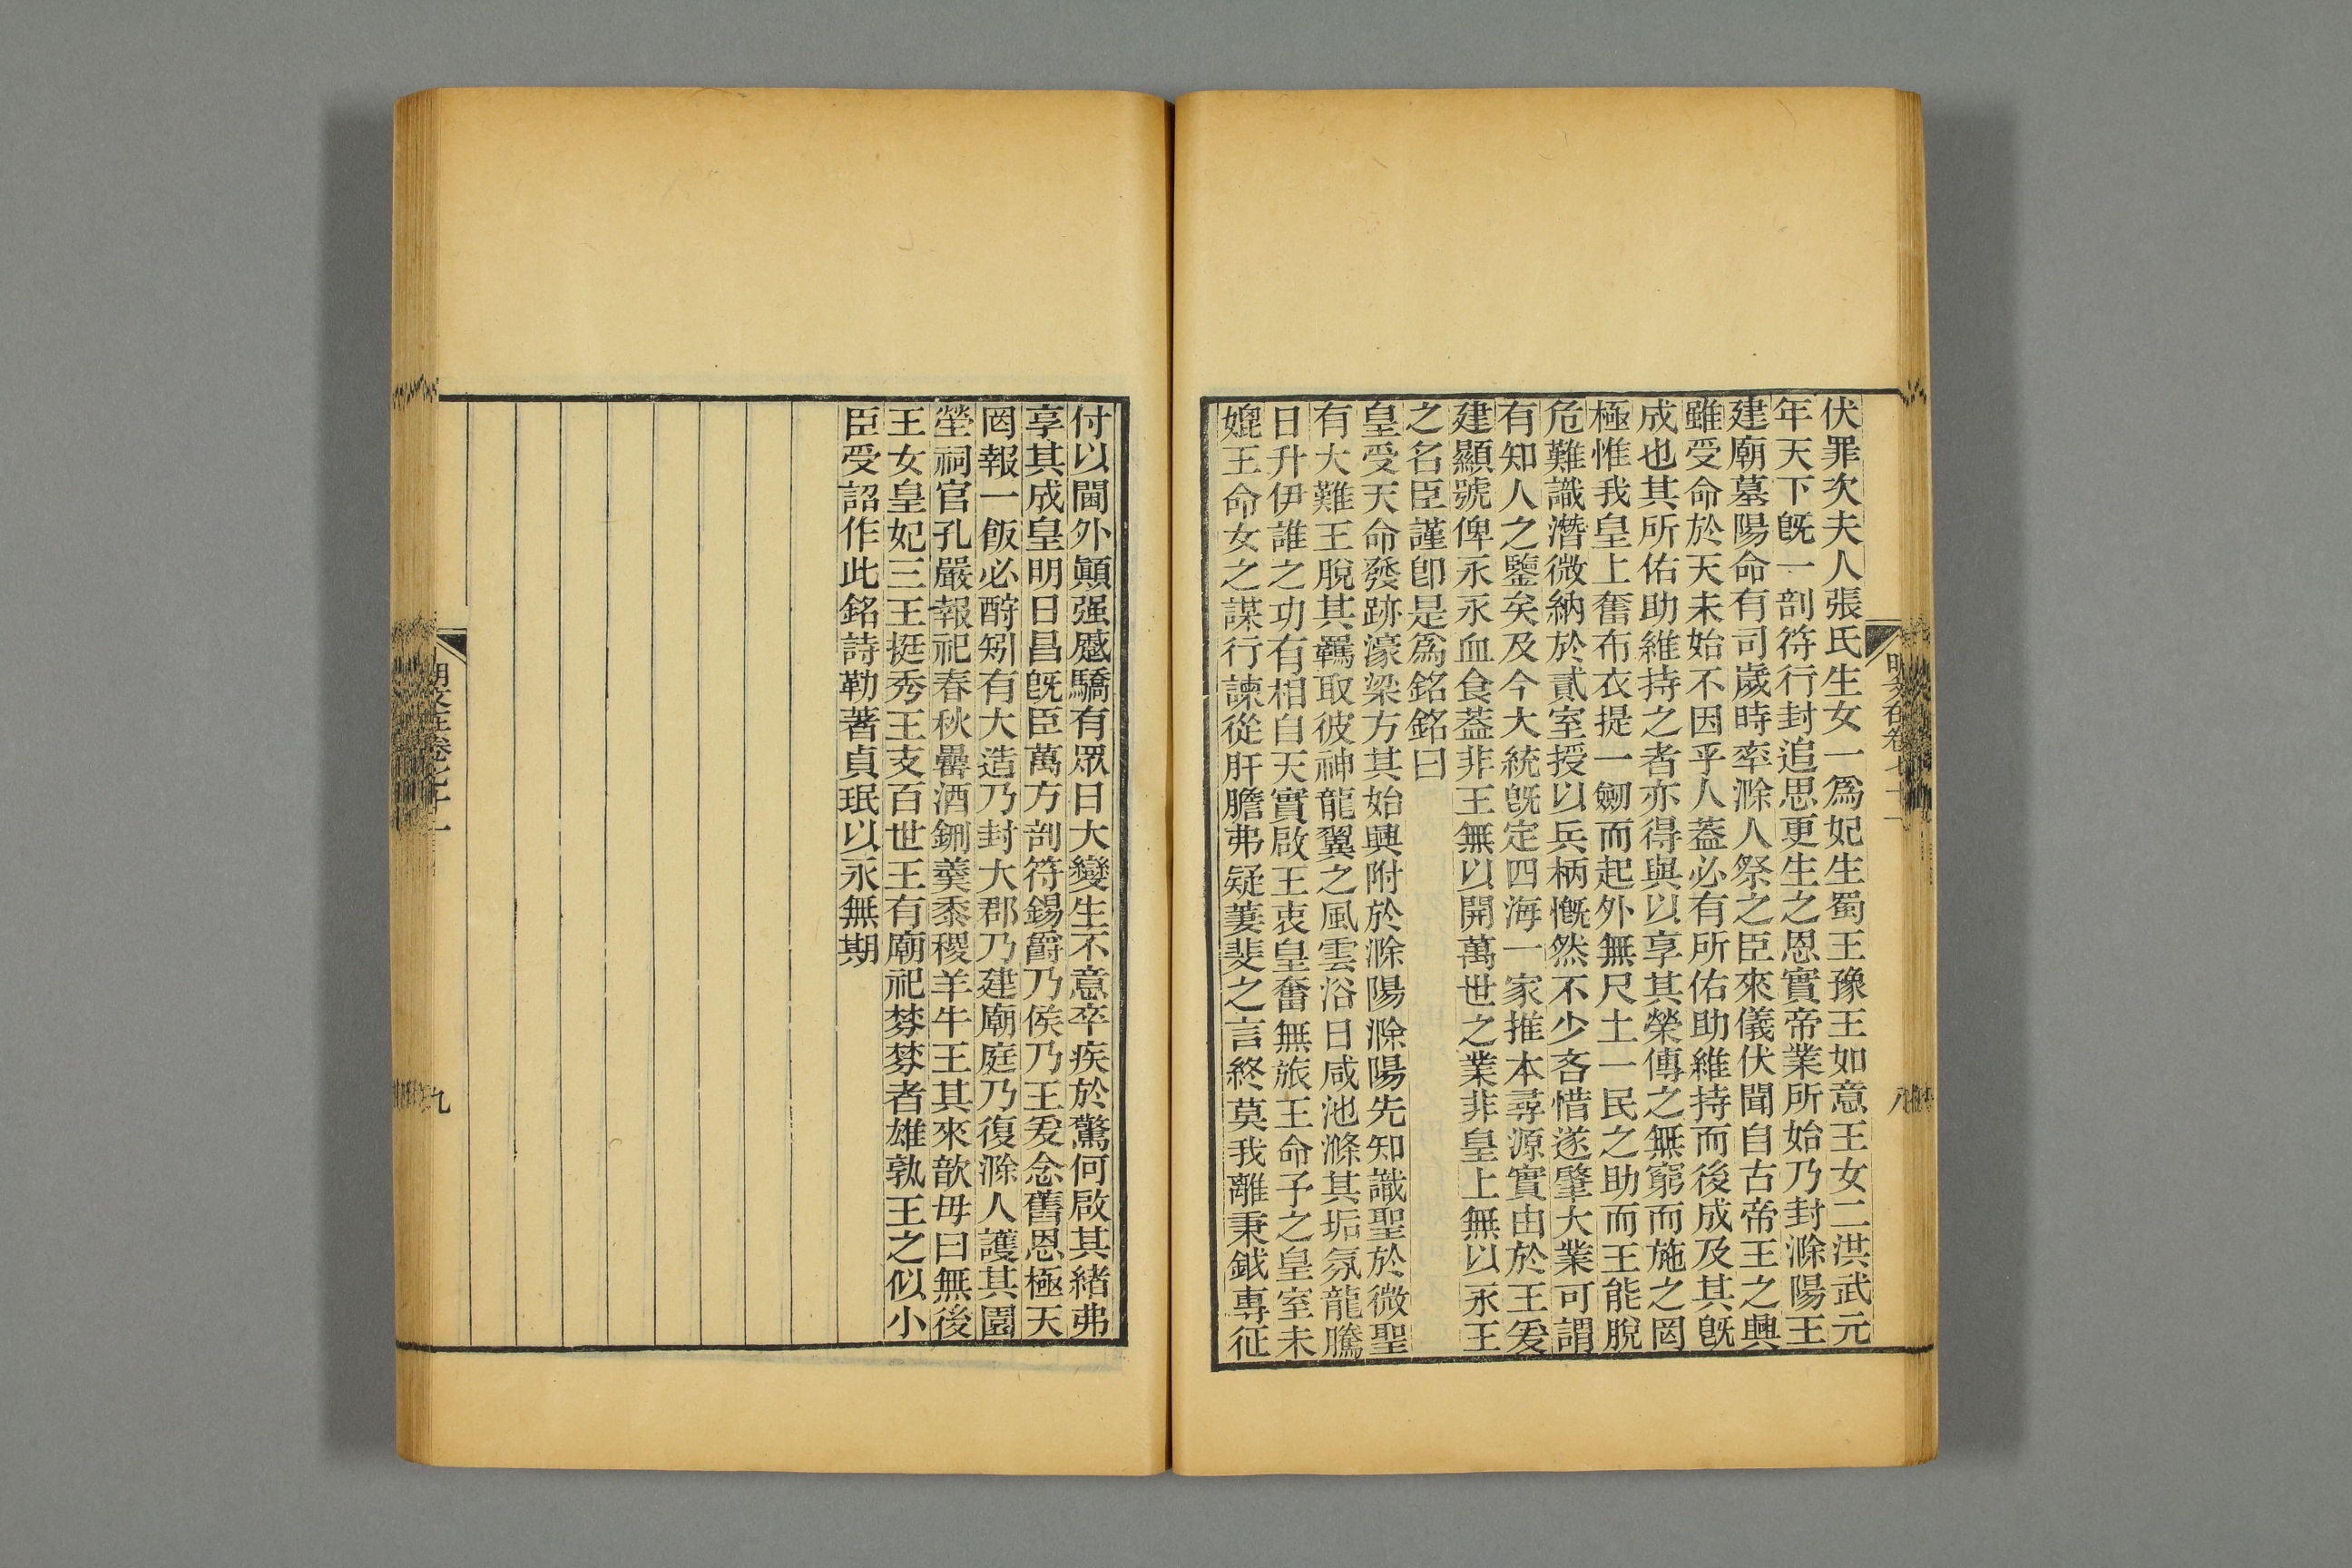 伏罪次夫人張氏生女一為妃生蜀王豫王如意王女二洪武元
年天下旣一剖符行封追思更生之恩實帝業所始乃封滁陽王
建廟墓陽命有司歲時率滁人祭之臣來儀伏聞自古帝王之興
雖受命於天未始不因乎人葢必有所佑助維持而後成及其旣
成也其所佑助維持之者亦得與以享其榮傳之無窮而施之罔
極惟我皇上奮布衣提一劒而起外無尺土一民之助而王能脫
危難識潛微納於貳室授以兵柄慨然不少吝惜遂肇大業可謂
有知人之鑒矣及今大統旣定四海一家推本尋源實由於王爰
建顯號俾永永血食葢非王無以開萬世之業非皇上無以永王
之名臣謹卽是爲銘銘曰
皇受天命發跡濠梁方其始興附於滁陽滁陽先知識聖於微聖
有大難王脫其羈取彼神龍翼之風雲浴日咸池滌其垢氛龍騰
日升伊誰之功有相自天實啟王衷皇奮無旅王命予之皇室未
媲王命女之謀行諫從肝膽弗疑萋斐之言終莫我離秉鉞專征
付以閫外顚强蹙驕有眾日大變生不意卒疾於驚何啟其緒弗
享其成皇明日昌旣臣萬方剖符錫爵乃侯乃王爰念舊恩極天
罔報一飯必酧矧有大造乃封大郡乃建廟庭乃復滁人護其園
塋祠官孔嚴報祀春秋罍酒鉶羹黍稷羊牛王其來歆毋曰無後
王女皇妃三王挺秀王支百世王有廟祀棼棼者雄孰王之似小
臣受詔作此銘詩勒著貞珉以永無期
明文在卷七十一
八
九